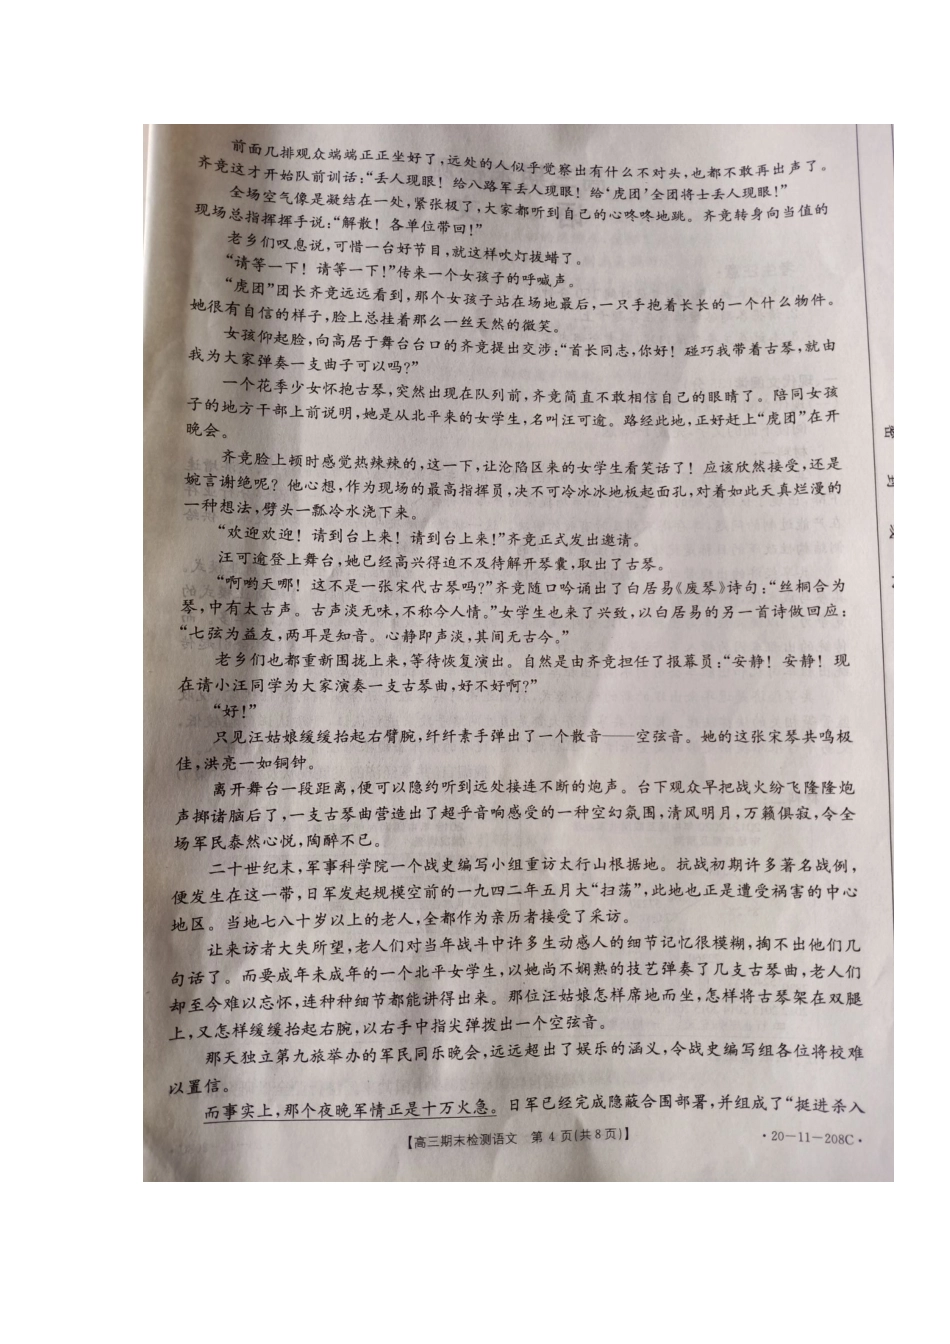 前面几排观众端端正正坐好了,远处的人似乎觉察出有什么不对头,也都不敢再出声了。
齐竞这才开始队前训话:“丢人现眼！给八路军丢人现眼！给‘虎团’全团将士丢人现眼!”
全场空气像是凝结在一处,紧张极了,大家都听到自己的心咚咚地跳。齐竞转身向当值的
现场总指挥挥手说:“解散！各单位带回!”
老乡们叹息说,可惜一台好节目,就这样吹灯拔蜡了。
“请等一下！请等一下!”传来一个女孩子的呼喊声。
“虎团”团长齐竞远远看到,那个女孩子站在场地最后,一只手抱着长长的一个什么物件。
她很有自信的样子,脸上总挂着那么一丝天然的微笑。
女孩仰起脸,向高居于舞台台口的齐竞提出交涉:“首长同志,你好！碰巧我带着古琴,就由
我为大家弹奏一支曲子可以吗?”
一个花季少女怀抱古琴,突然出现在队列前,齐竞简直不敢相信自己的眼睛了。陪同女孩
子的地方干部上前说明,她是从北平来的女学生,名叫汪可逾。路经此地,正好赶上“虎团”在开
晚会。
齐竞脸上顿时感觉热辣辣的,这一下,让沦陷区来的女学生看笑话了！应该欣然接受,还是
婉言谢绝呢？他心想,作为现场的最高指挥员,决不可冷冰冰地板起面孔,对着如此天真烂漫的
一种想法,劈头一瓢冷水浇下来。
“欢迎欢迎！请到台上来！请到台上来!”齐竞正式发出邀请。
汪可逾登上舞台,她已经高兴得迫不及待解开琴囊,取出了古琴。
“啊哟天哪！这不是一张宋代古琴吗?”齐竞随口吟诵出了白居易《废琴》诗句:“丝桐合为
琴,中有太古声。古声淡无味,不称今人情。”女学生也来了兴致,以白居易的另一首诗做回应:
“七弦为益友,两耳是知音。心静即声淡,其间无古今。”
老乡们也都重新围拢上来,等待恢复演出。自然是由齐竞担任了报幕员:“安静！安静！现
在请小汪同学为大家演奏一支古琴曲,好不好啊?”
“好!”
只见汪姑娘缓缓抬起右臂腕,纤纤素手弹出了一个散音——空弦音。她的这张宋琴共鸣极
佳,洪亮一如铜钟。
离开舞台一段距离,便可以隐约听到远处接连不断的炮声。台下观众早把战火纷飞隆隆炮
声掷诸脑后了,一支古琴曲营造出了超乎音响感受的一种空幻氛围,清风明月,万籁俱寂,令全
场军民泰然心悦,陶醉不已。
二十世纪末,军事科学院一个战史编写小组重访太行山根据地。抗战初期许多著名战例,
便发生在这一带,日军发起规模空前的一九四二年五月大“扫荡”,此地也正是遭受祸害的中心
地区。当地七八十岁以上的老人,全都作为亲历者接受了采访。
让来访者大失所望,老人们对当年战斗中许多生动感人的细节记忆很模糊,掏不出他们几
句话了。而要成年未成年的一个北平女学生,以她尚不娴熟的技艺弹奏了几支古琴曲,老人们
却至今难以忘怀,连种种细节都能讲得出来。那位汪姑娘怎样席地而坐,怎样将古琴架在双腿
上,又怎样缓缓抬起右腕,以右手中指尖弹拨出一个空弦音。
那天独立第九旅举办的军民同乐晚会,远远超出了娱乐的涵义,令战史编写组各位将校难
以置信。
而事实上,那个夜晚军情正是十万火急。日军已经完成隐蔽合围部署,并组成了“挺进杀入
【高三期末检测语文　第 4 页(共 8 页)】
·20-11-208C·